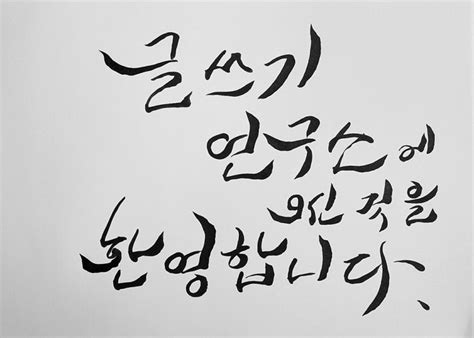 글쓰기
연구소에
오신 것을
환영합니다.